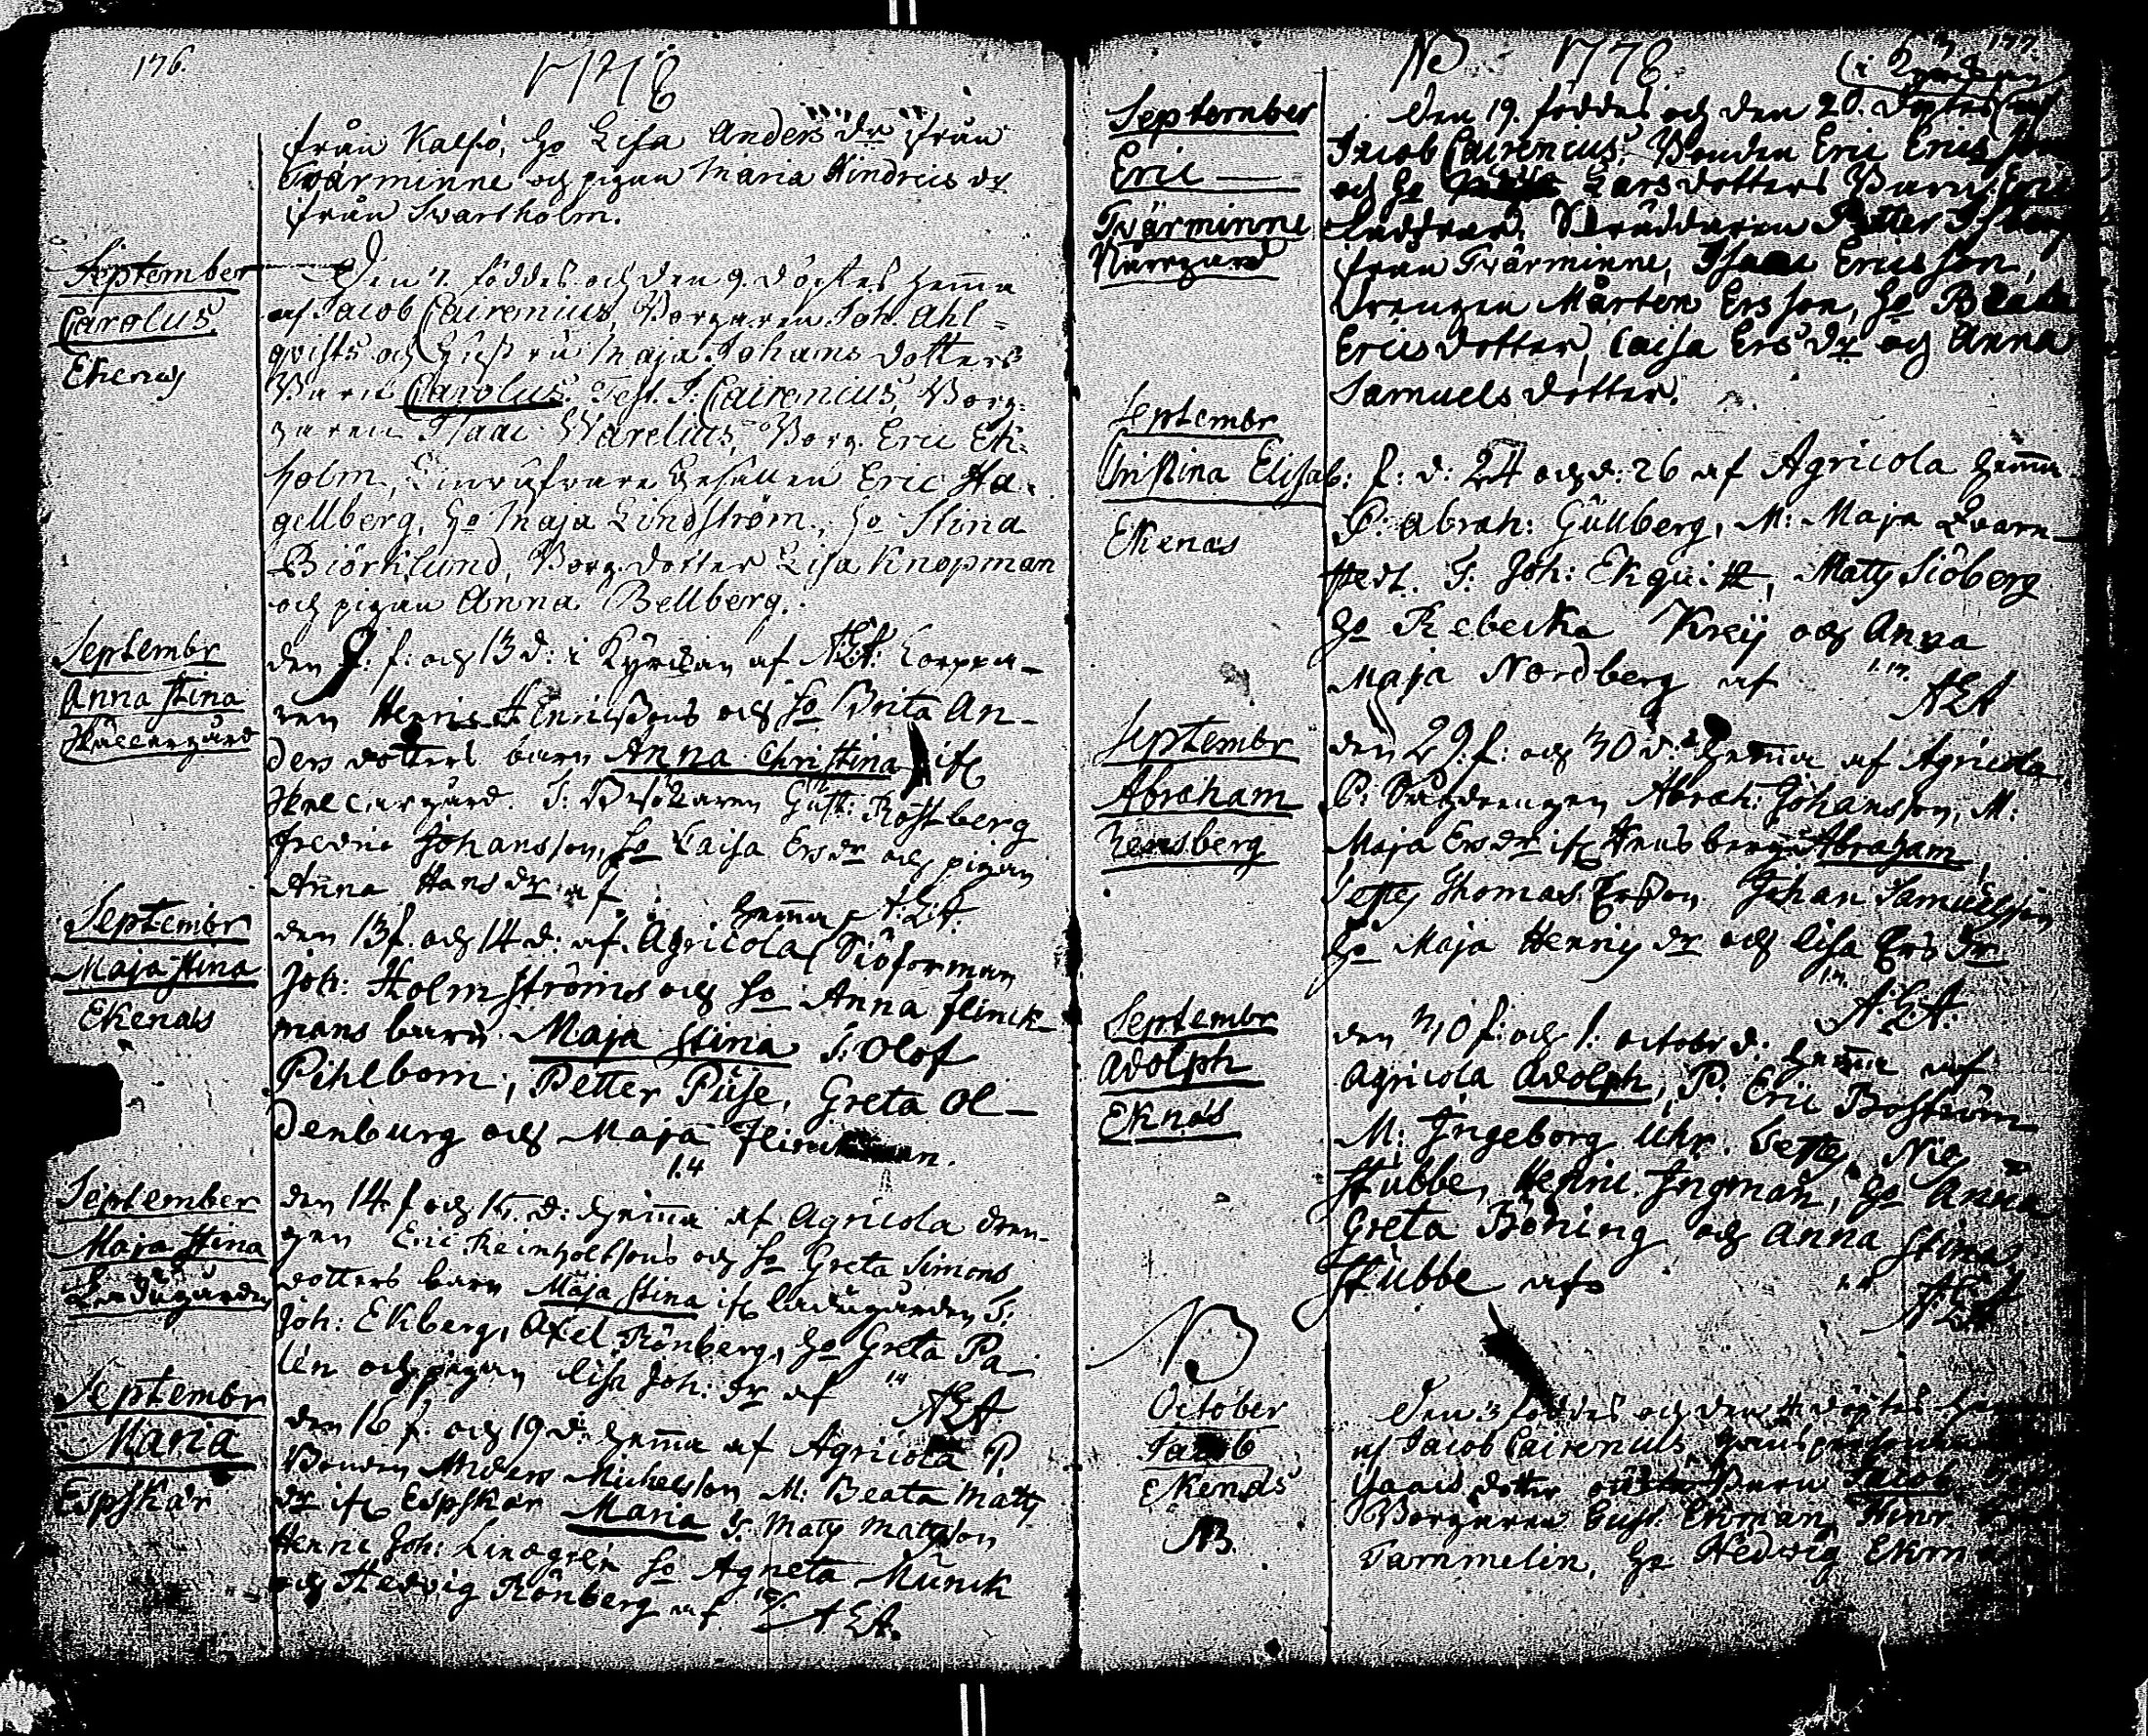 176.
1778
från Kalfö, H:o Lisa Anders dr från
Tvärminne och pigan Maria Hindrics dr
från Svartholm.
September
Carolus
Ekenäs
Den 7. föddes och den 9. döptes hemma
af Jacob Cairenius, Borgaren Joh. Ahl=
qvists och Hustru Maja Johans dotters
Barn Carolus. Test. J. Cairenius, Bor=
garen Isaac Warelius, Borg. Eric Ek=
holm, Gesällen Eric Ha=
gellberg, H:o Maja Lindström, H:o Stina
Biörklund, Borg. dotter Lisa Knopman
och pigan Anna Bellberg.
Septembr
Anna Stina
den 9: f: och 13 d: i Kyrckan af AEA:
ren Henric Henricssons och H:o Brita An-
ders dotters barn Anna Christina if:
T: Gust: Rostberg
Fredric Johansson, H:o Caisa Ers dr och pigan
Anna Hans dr af A.E.A.
September
Maja Stina
Ekenäs
den 13 f. och 14 d: af Agricola hemma Siöforman
Joh: Holmströms och H:o Anna Flinck-
mans barn Maja Stina T: Olof
Pihlbom, Petter Piise, Greta Ol-
denburg och Maja
1.4
September
Maja Stina
Ladugården
den 14 f och 15. d: hemma af Agricola dren-
gen Eric Reinholdssons och H:o Greta Simons
dotters barn Maja Stina if: ladugården T:
Joh: Ekberg, Axel Rönberg, H:o Greta Pa-
lén och pigan Lisa Joh: dr af
AEA
Septembr
Maria
Espskär
den 16 f. och 19 d: hemma af Agricola P.
Bonden Anders Michelsson M: Beata Matts
dr if: Espskär Maria T: Matts Mattsson
Henric Joh: Lindgrén H:o Agneta Munck
och Hedvig Rönberg af AEA.
NB 1778
177.
September
Eric
Tvärminne
Norrgård
i Kyrckan
Den 19. föddes och den 20. döptes af
Jacob Cairenius, Bonden Eric Erics
och H:o Lars dotters Barn Eric
Petter
från Tvärminne, Isaac Ericsson,
Drengen Mårten Ersson, H:o Beata
Erics dotter, Caisa Ers dr och Anna
Samuels dotter.
Septembr
Christina Elisab: f: d: 24 och d: 26 af Agricola hemma
Ekenäs
P: Abrah: Gullberg, M: Maja Qvarn-
stedt. T: Joh: Ekquist, Matts Siöberg
H:o Rebecka Kreij och Anna
Maja Nordberg af
AEA
Septembr
Abraham
den 29. f: och 30 d: hemma af Agricola
P: Abrah: Johansson, M:
Maja Ers dr if: Abraham
Testes Thomas Ersson Johan Samuelsson
H:o Maja Henrics dr och Lisa Ers dr
A.E.A.
Septembr
Adolph
Eknäs
den 30 f: och 1. octobr d: hemma af
Agricola Adolph, P: Eric Boström
M: Ingeborg Uhr. Testes Nic
Stubbe, Henric Ingman, H:o Anna
Greta Böning och Anna Stina
Stubbe af
AEA
NB
October
Jacob
Ekenäs
NB.
Den 3 föddes och den 4 döptes
af Jacob Cairenius,
dotter Barn Jacob
Borgaren Gust. Ekman, Hinr.
Tammelin, H:o Hedwig Ekm